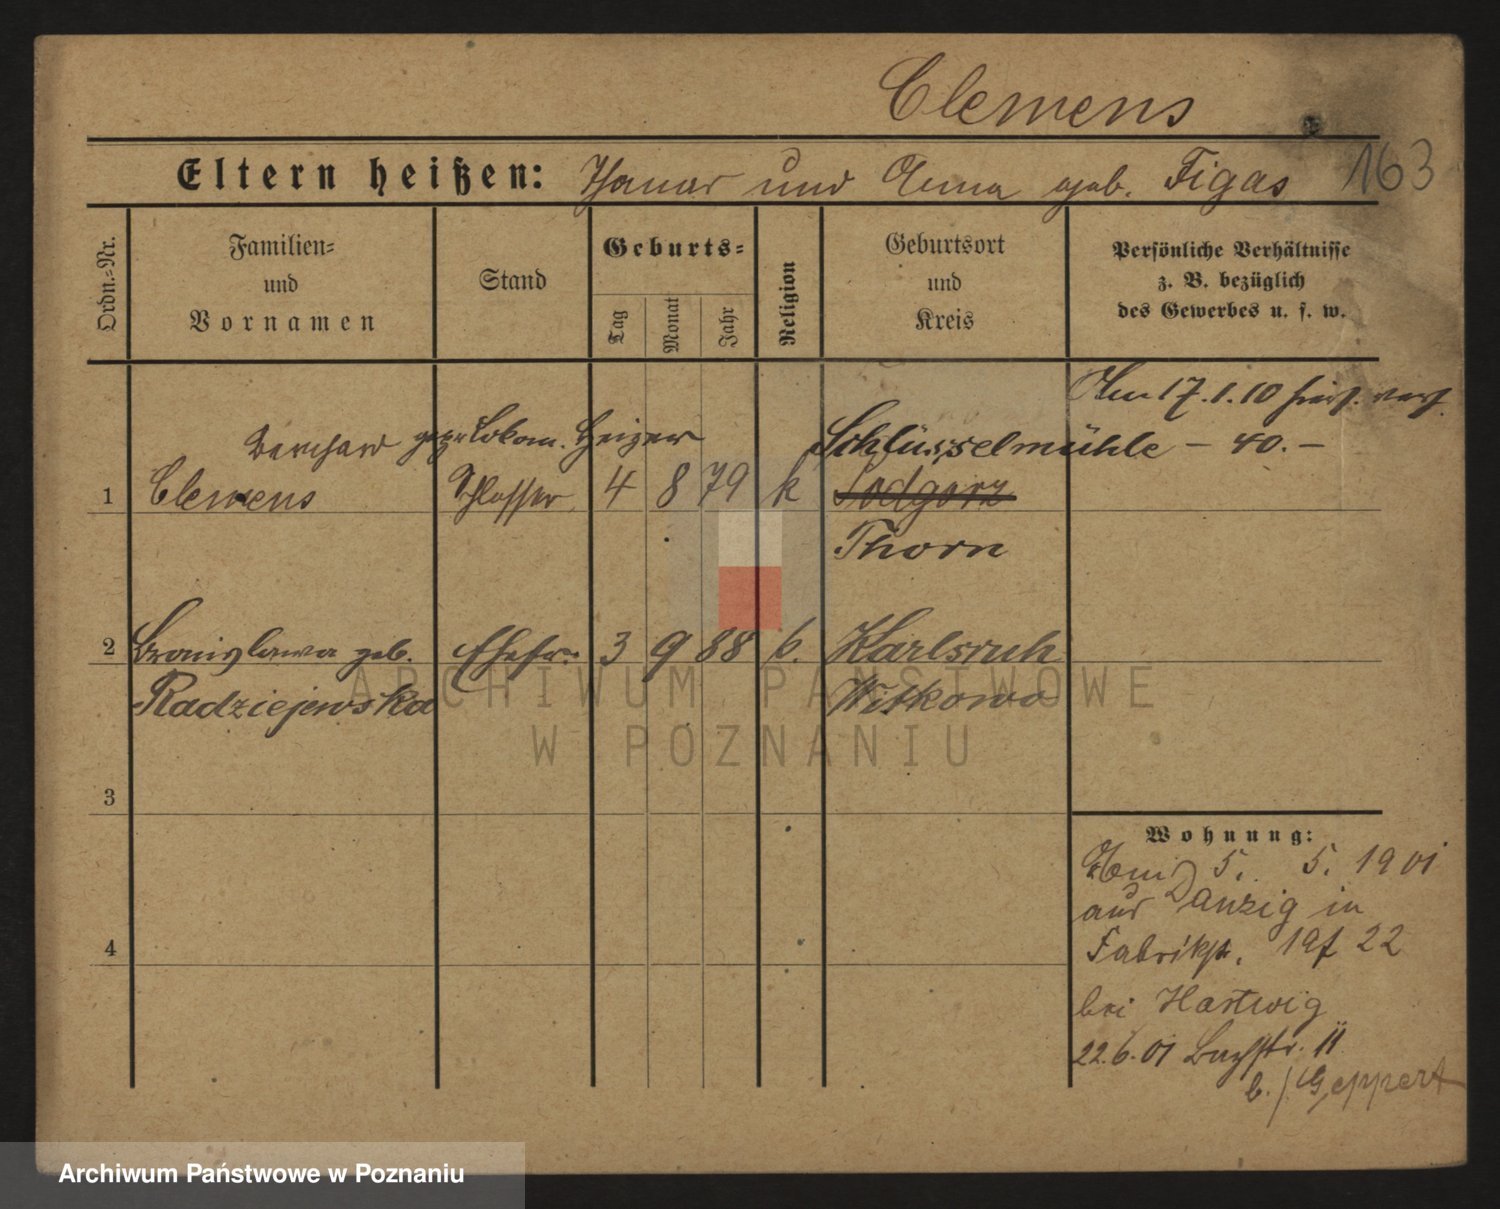 Clemens
Eltern heißen: Thomas und Anna geb. Figas 163
Ordn.=Nr.
Familien=
und
Vornamen
Stand
Geburts=
Tag
Monat
Jahr
Religion
Geburtsort
und
Kreis
Persönliche Verhältnisse
z. B. bezüglich
des Gewerbes u. s. w.
Am 17.1.10
Bernhard gepr Lokom. Heizer Schlüsselmühle – 40. –
1 Clemens Schlosser 4 8 79 k Podgorz
Thorn
2 Bronislawa geb. Ehefr. 3 9 88 k. Karlsruh
Radziejewska Witkowo
3
4
Wohnung:
5. 5. 1901
aus Danzig in
Fabrikstr. 22
bei Hartwig
22.6.01 Buchstr. 11
b./ Geppert
ARCHIWUM PAŃSTWOWE
W POZNANIU
Archiwum Państwowe w Poznaniu